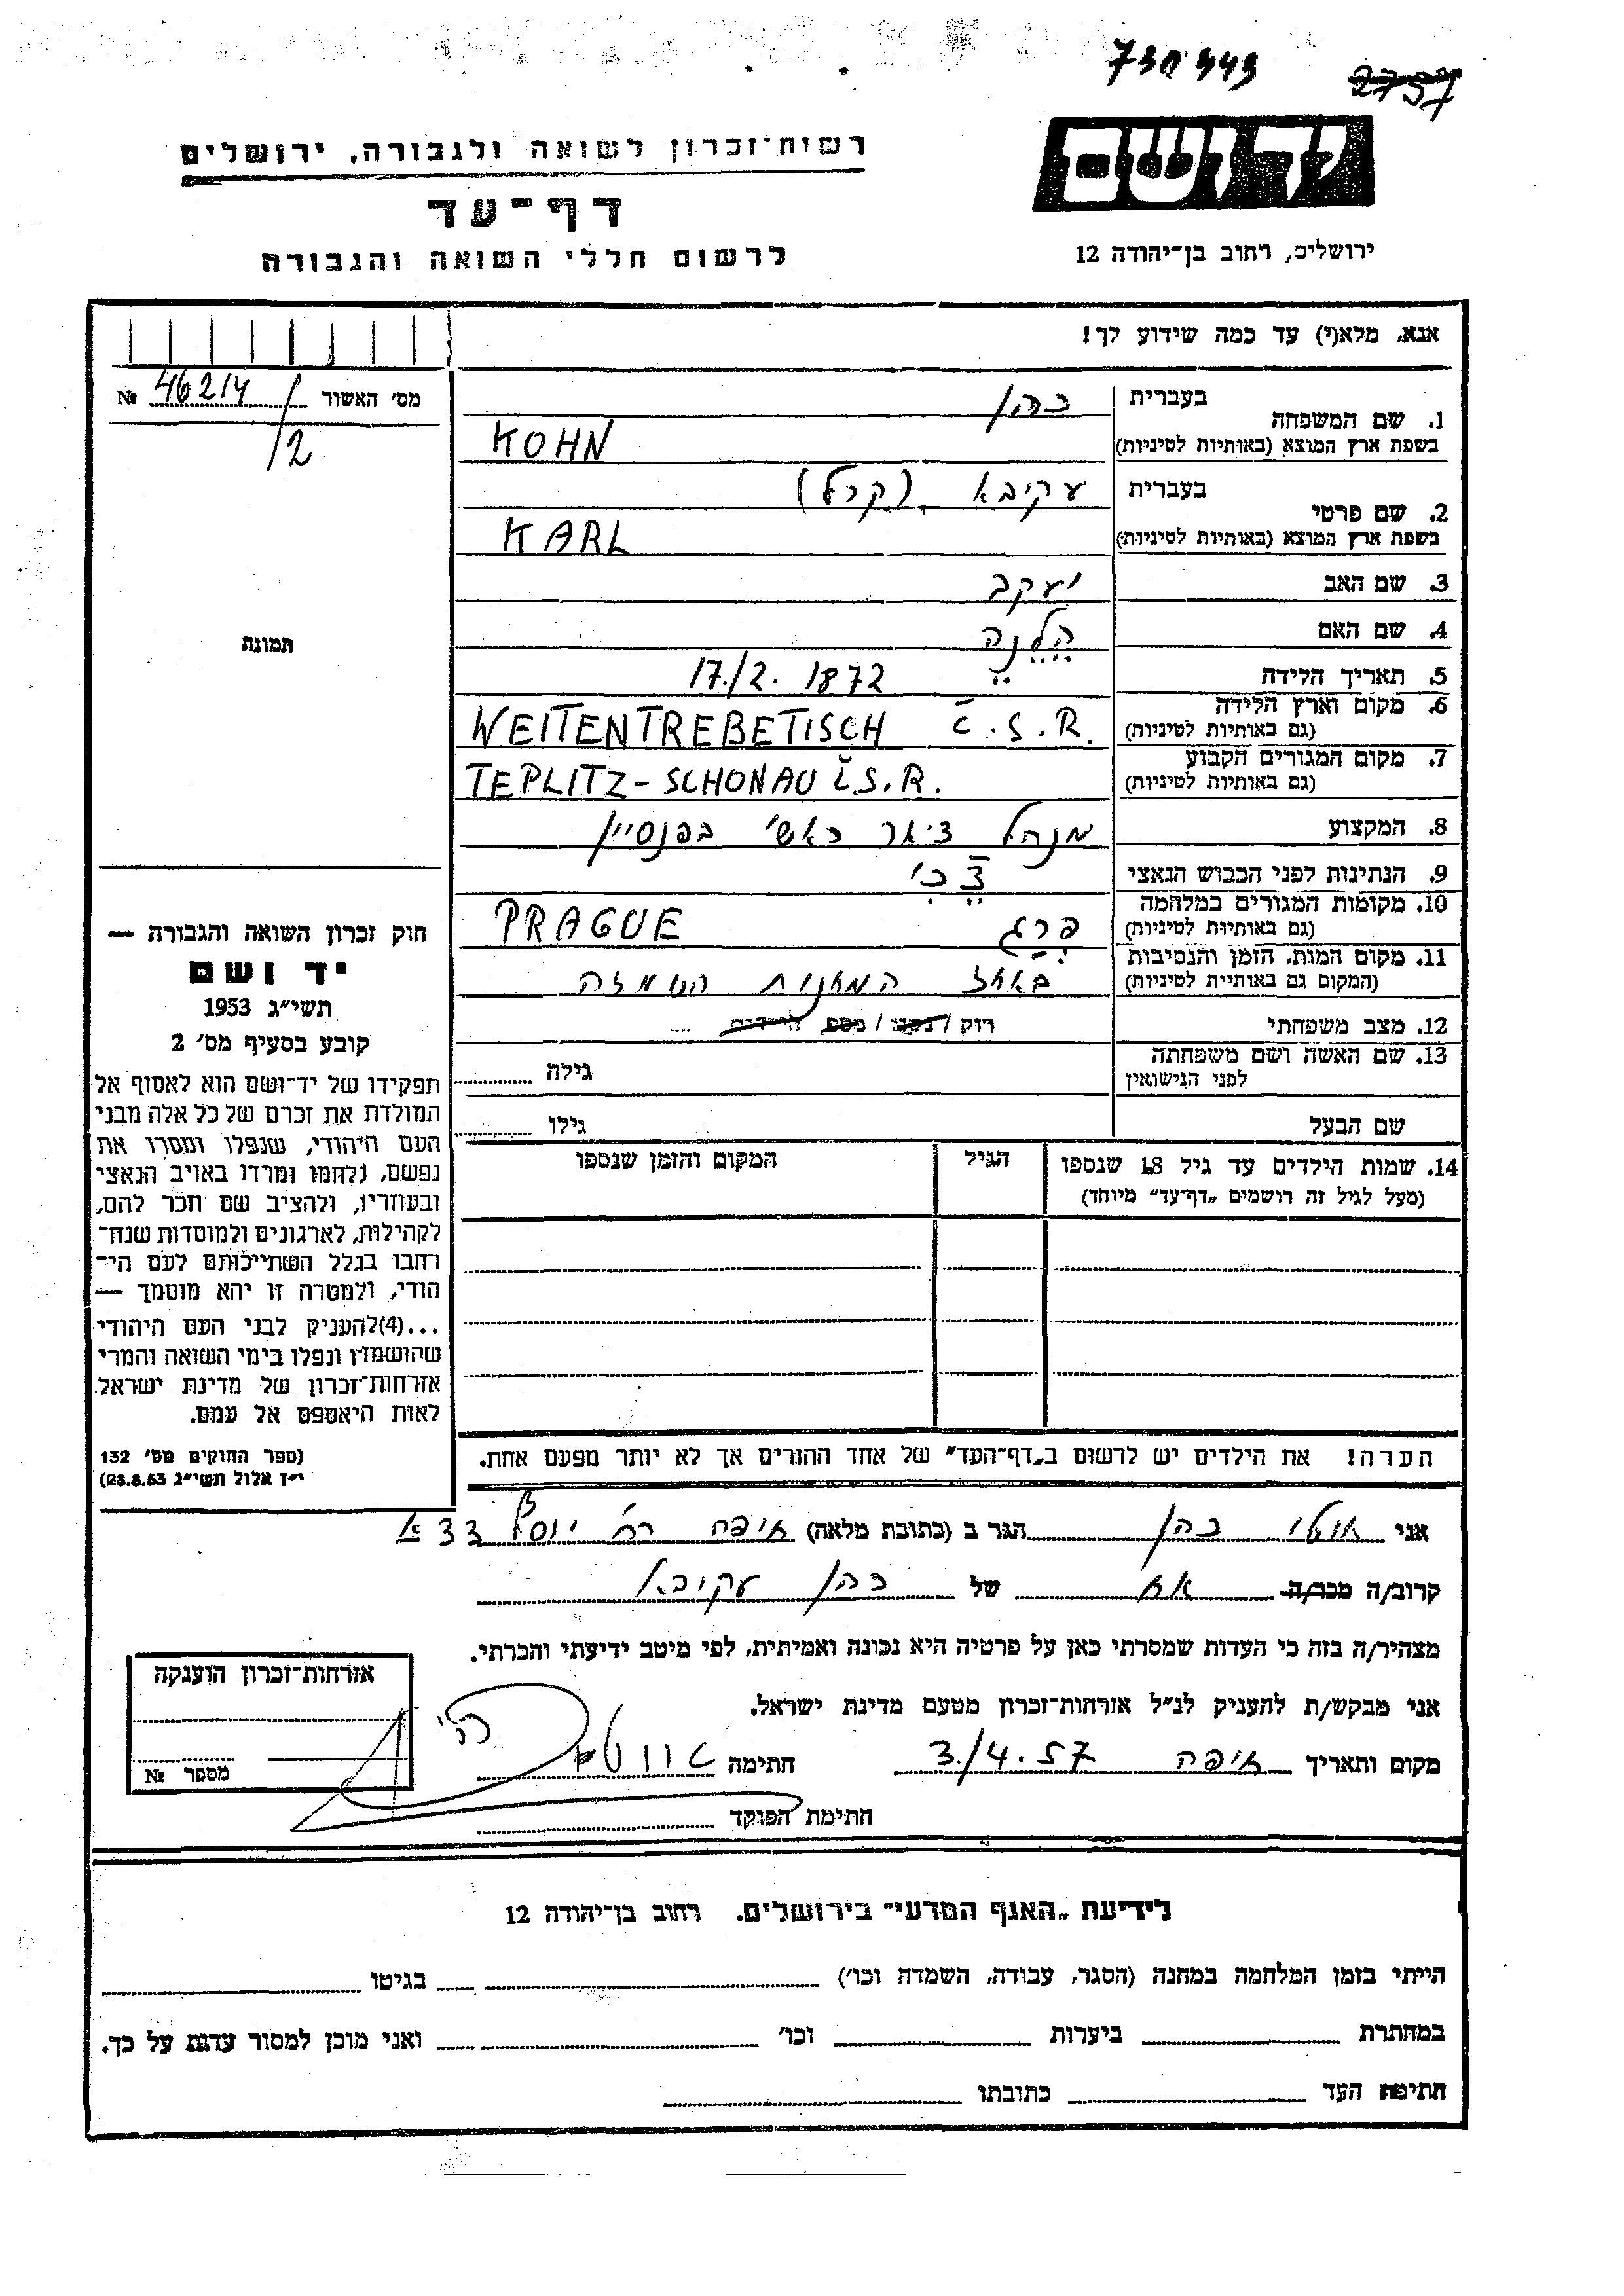 730343
2757
יד ושם
רשות־זכרון לשואה ולגבורה, ירושלים
דף־עד
לרשום חללי השואה והגבורה
ירושלים, רחוב בן־יהודה 12
אנא, מלא(י) עד כמה שידוע לך!
מס׳ האשור № 46214/12
1. שם המשפחה
בעברית כהן
בשפת ארץ המוצא (באותיות לטיניות) KOHN
2. שם פרטי
בעברית עקיבא (קרל)
בשפת ארץ המוצא (באותיות לטיניות) KARL
3. שם האב יעקב
4. שם האם הֶלֶנֶה
תמונה
5. תאריך הלידה 17./2. 1872
6. מקום וארץ הלידה
(גם באותיות לטיניות) WEITENTREBETISCH Č.S.R.
7. מקום המגורים הקבוע
(גם באותיות לטיניות) TEPLITZ-SCHONAU Č.S.R.
8. המקצוע מנהל בפנסיון
9. הנתינות לפני הכבוש הנאצי צֶ׳כִי
10. מקומות המגורים במלחמה
(גם באותיות לטיניות) פרג PRAGUE
11. מקום המות, הזמן והנסיבות
(המקום גם באותיות לטיניות) באחד המחנות השמדה
12. מצב משפחתי רוק / נשוי / מספר הילדים ....
13. שם האשה ושם משפחתה
לפני הנישואין
גילה
שם הבעל גילו
14. שמות הילדים עד גיל 18 שנספו
(מעל לגיל זה רושמים „דף־עד” מיוחד)
הגיל
המקום והזמן שנספו
חוק זכרון השואה והגבורה —
יד ושם
תשי״ג 1953
קובע בסעיף מס׳ 2
תפקידו של יד־ושם הוא לאסוף אל
המולדת את זכרם של כל אלה מבני
העם היהודי, שנפלו ומסרו את
נפשם, נלחמו ומרדו באויב הנאצי
ובעוזריו, ולהציב שם וזכר להם,
לקהילות, לארגונים ולמוסדות שנח־
רבו בגלל השתייכותם לעם הי־
הודי, ולמטרה זו יהא מוסמך —
...(4) להעניק לבני העם היהודי
שהושמדו ונפלו בימי השואה והמרי
אזרחות־זכרון של מדינת ישראל
לאות היאספם אל עמם.
(ספר החוקים מס׳ 132
י״ז אלול תשי״ג 28.8.53)
הערה! את הילדים יש לרשום ב„דף־העד” של אחד ההורים אך לא יותר מפעם אחת.
אני אוטו כהן הגר ב (כתובת מלאה) חיפה רח׳ יוסף 33
קרוב/ה מכר/ה אח של כהן עקיבא
מצהיר/ה בזה כי העדות שמסרתי כאן על פרטיה היא נכונה ואמיתית, לפי מיטב ידיעתי והכרתי.
אני מבקש/ת להעניק לנ״ל אזרחות־זכרון מטעם מדינת ישראל.
מקום ותאריך חיפה 3./4.57 חתימה
חתימת הפוקד
אזרחות־זכרון הוענקה
מספר №
לידיעת „האגף המדעי” בירושלים, רחוב בן־יהודה 12
הייתי בזמן המלחמה במחנה (הסגר, עבודה, השמדה וכו׳) בגיטו
במחתרת ביערות וכו׳ ואני מוכן למסור עדות על כך.
חתימת העד כתובתו